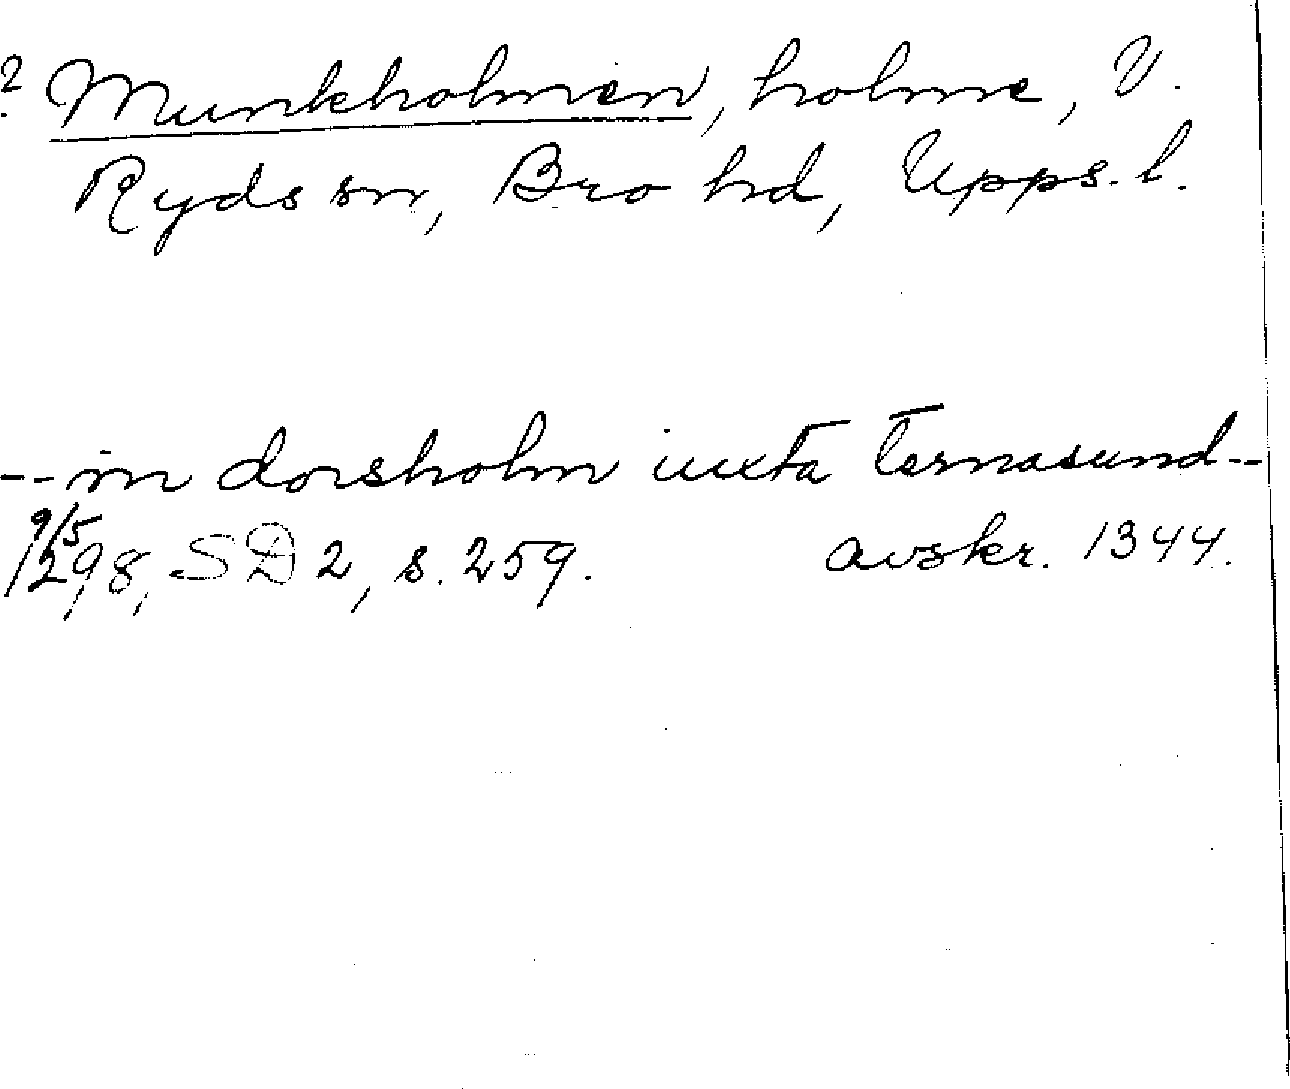 ? Munkholmen, holme, V.
Ryds sn, Bro hd, Upps. l.
-- in dorsholm iuxta Ternasund --
9/5
1298, SD 2, s. 259. avskr. 1344.